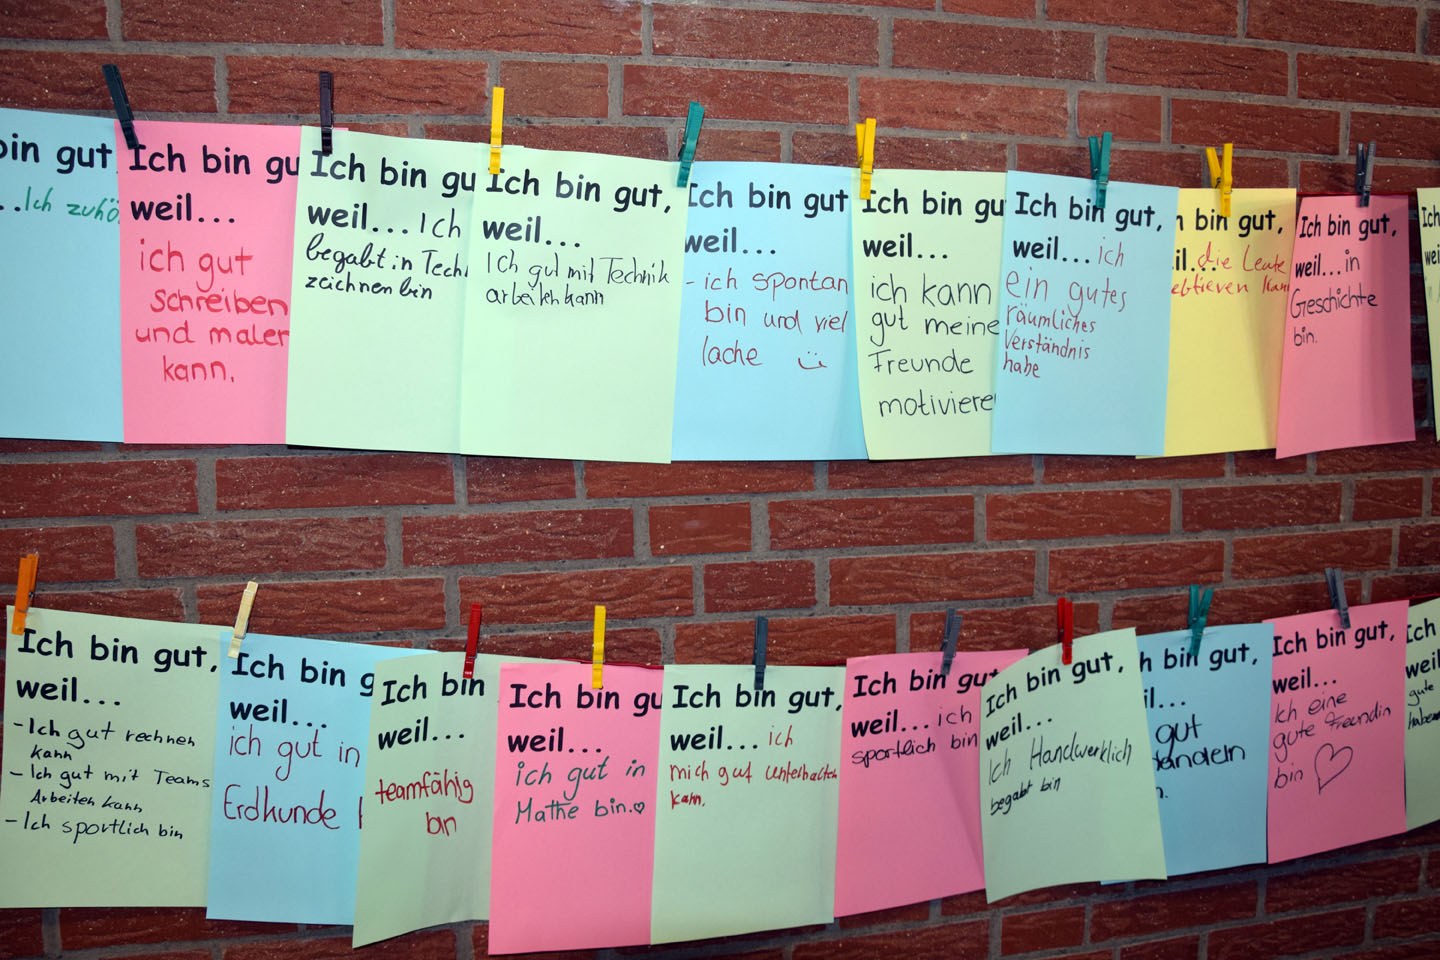 bin gut,
...Ich
Ich bin gu
weil...
ich gut
schreiben
und maler
kann.
Ich bin gu
weil... Ich
begabt in Tech
zeichnen bin
Ich bin gut,
weil...
Ich gut mit Technik
arbeiten kann
Ich bin gut
weil...
- ich spontan
bin und viel
lache
Ich bin gu
weil...
ich kann
gut meine
Freunde
motiviere
Ich bin gut,
weil... ich
ein gutes
räumliches
Verständnis
habe
h bin gut,
il... die Leute
Ich bin gut,
weil... in
Geschichte
bin.
Ich
wei
Ich bin gut,
weil...
- Ich gut rechnen
kann
- Ich gut mit Teams
Arbeiten kann
- Ich sportlich bin
Ich bin g
weil...
ich gut in
Erdkunde
Ich bin
weil...
teamfähig
bin
Ich bin gu
weil...
ich gut in
Mathe bin.
Ich bin gut,
weil... ich
mich gut unterhalten
kann.
Ich bin gut
weil... ich
sportlich bin
Ich bin gut,
weil...
Ich Handwerklich
begabt bin
h bin gut,
il...
gut
n.
Ich bin gut,
weil...
Ich eine
gute Freundin
bin
Ich
weil
gute